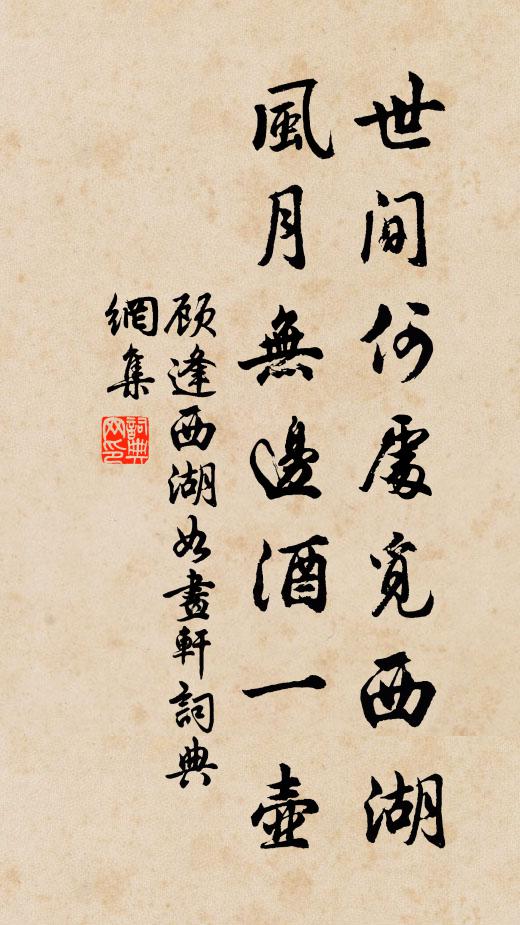 世間何處覓西湖
風月無邊酒一壺
顧逢西湖如畫軒詞典
網集
詞典
网印